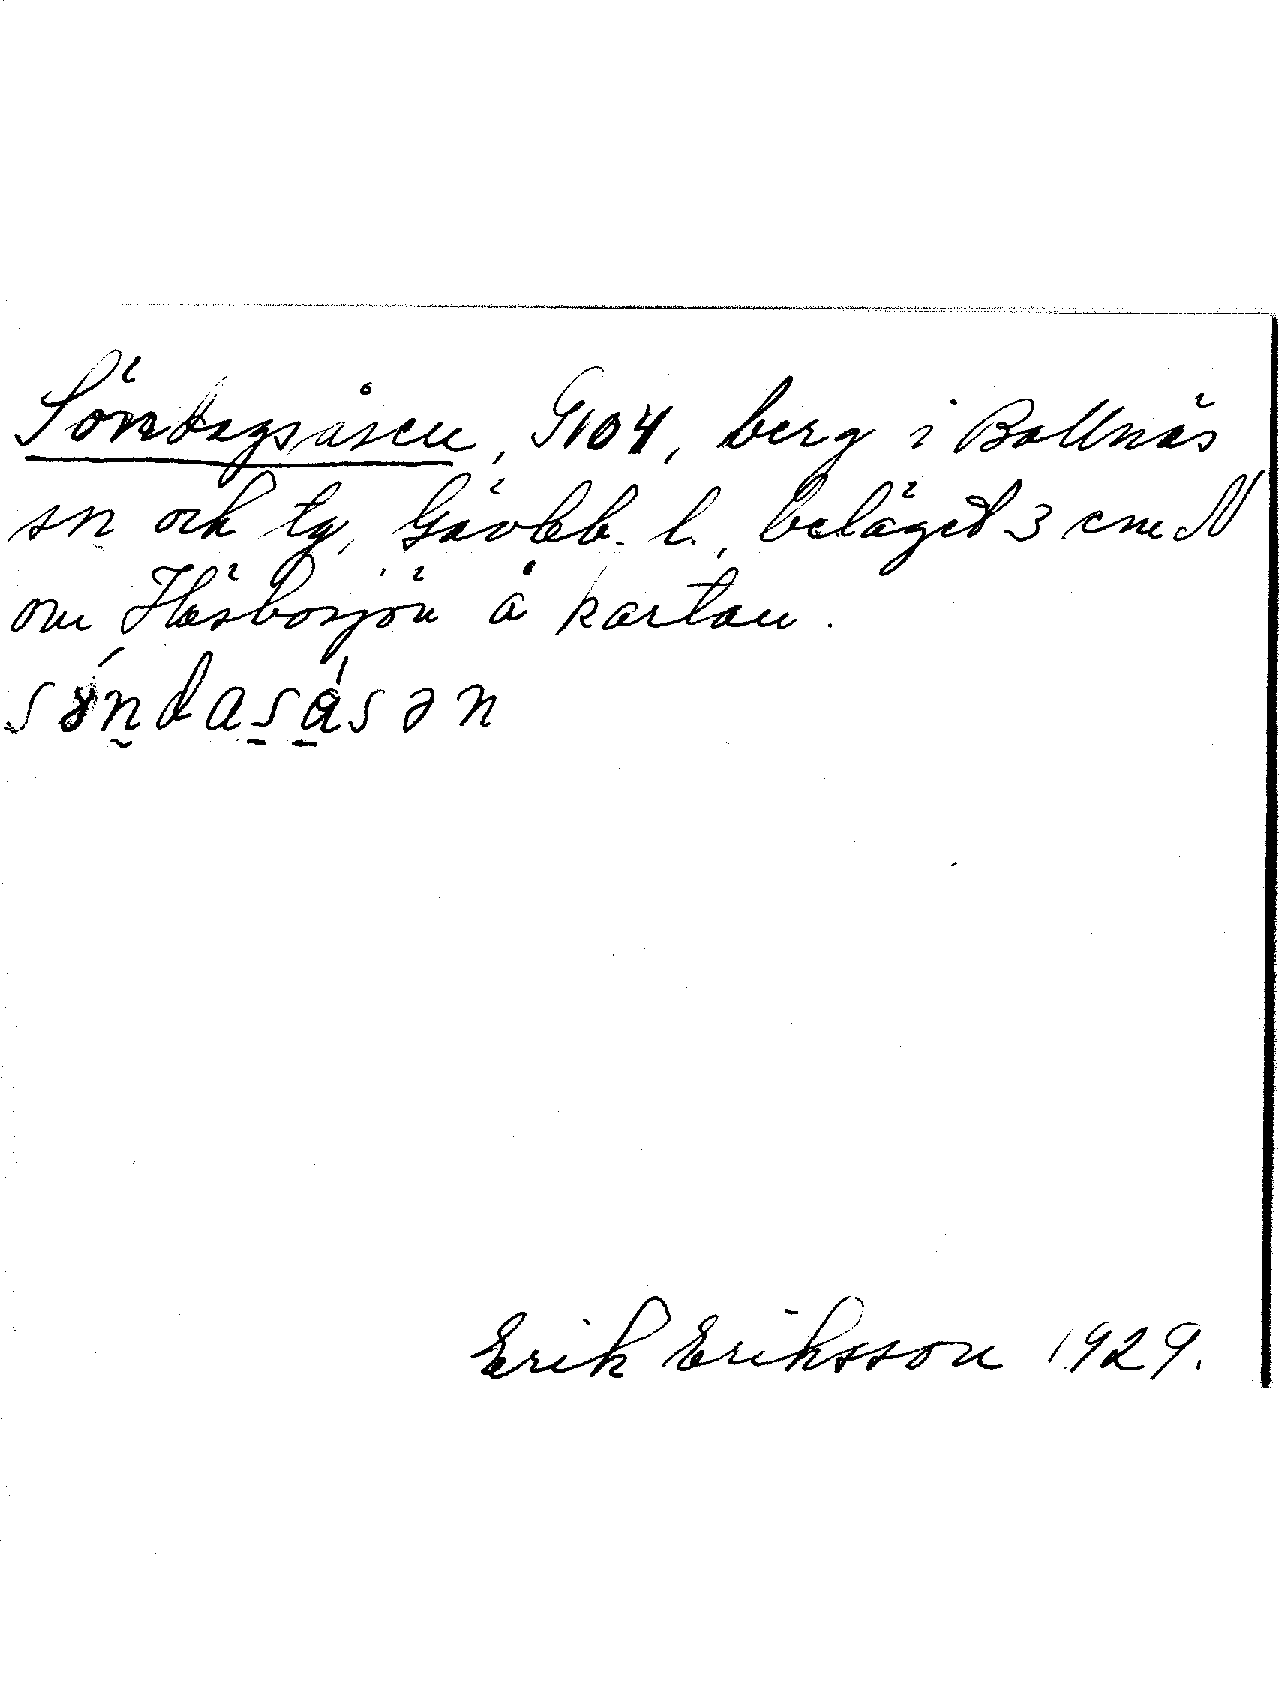 Söndagsåsen, G104, berg i Bollnäs
sn och tg, Gävleb. l., beläget 3 cm N
om Häsbosjön å kartan.
sǿn̰das̱å̱sən
Erik Eriksson 1929.